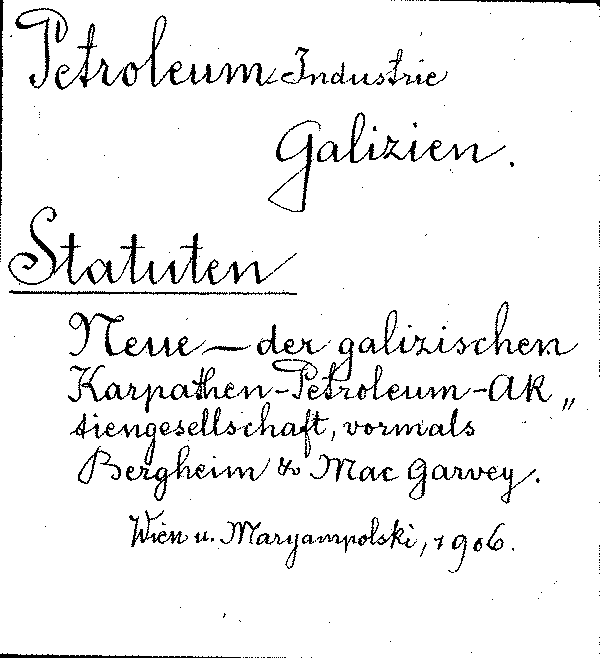 Petroleum Industrie
Galizien.
Statuten
Neue — der galizischen
Karpathen-Petroleum-Ak„
tiengesellschaft, vormals
Bergheim & Mac Garvey.
Wien u. Maryampolski, 1906.